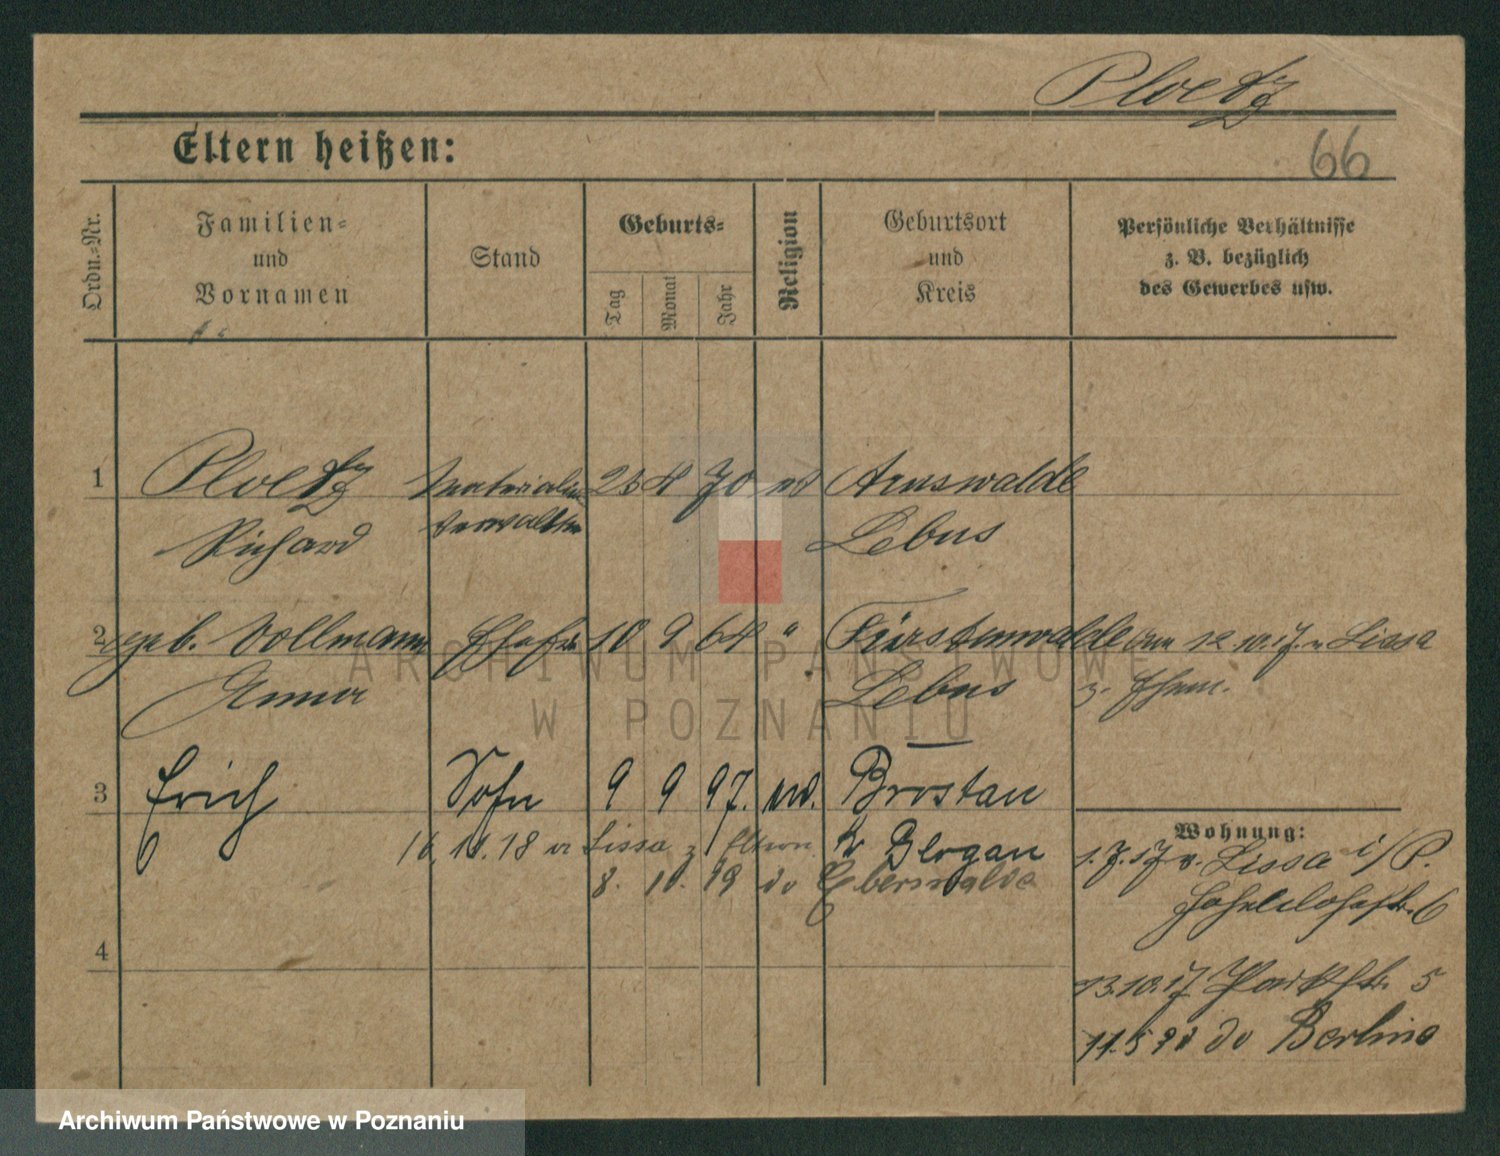 Ploetz
Eltern heißen:
66
Ordn.-Nr.
Familien-
und
Vornamen
Stand
Geburts-
Tag
Monat
Jahr
Religion
Geburtsort
und
Kreis
Persönliche Verhältnisse
z. B. bezüglich
des Gewerbes usw.
1 Ploetz 4 70 Arnswalde
Richard Lebus
2 geb. Vollmann Ehefr. 10 9 64 " Fürstenwalde 12.10.17. v. Lissa
Lebus z. Ehem.
3 Erich Sohn 9 9 97. Brostau
Kr Glogau
18 Lissa z Eltern
8. 10. 19 do Eberswalde
Wohnung:
1.7.17 v. Lissa i/P.
6
13.10.17 Parkstr. 5
11.5 do Berlin
4
ARCHIWUM PAŃSTWOWE
W POZNANIU
Archiwum Państwowe w Poznaniu